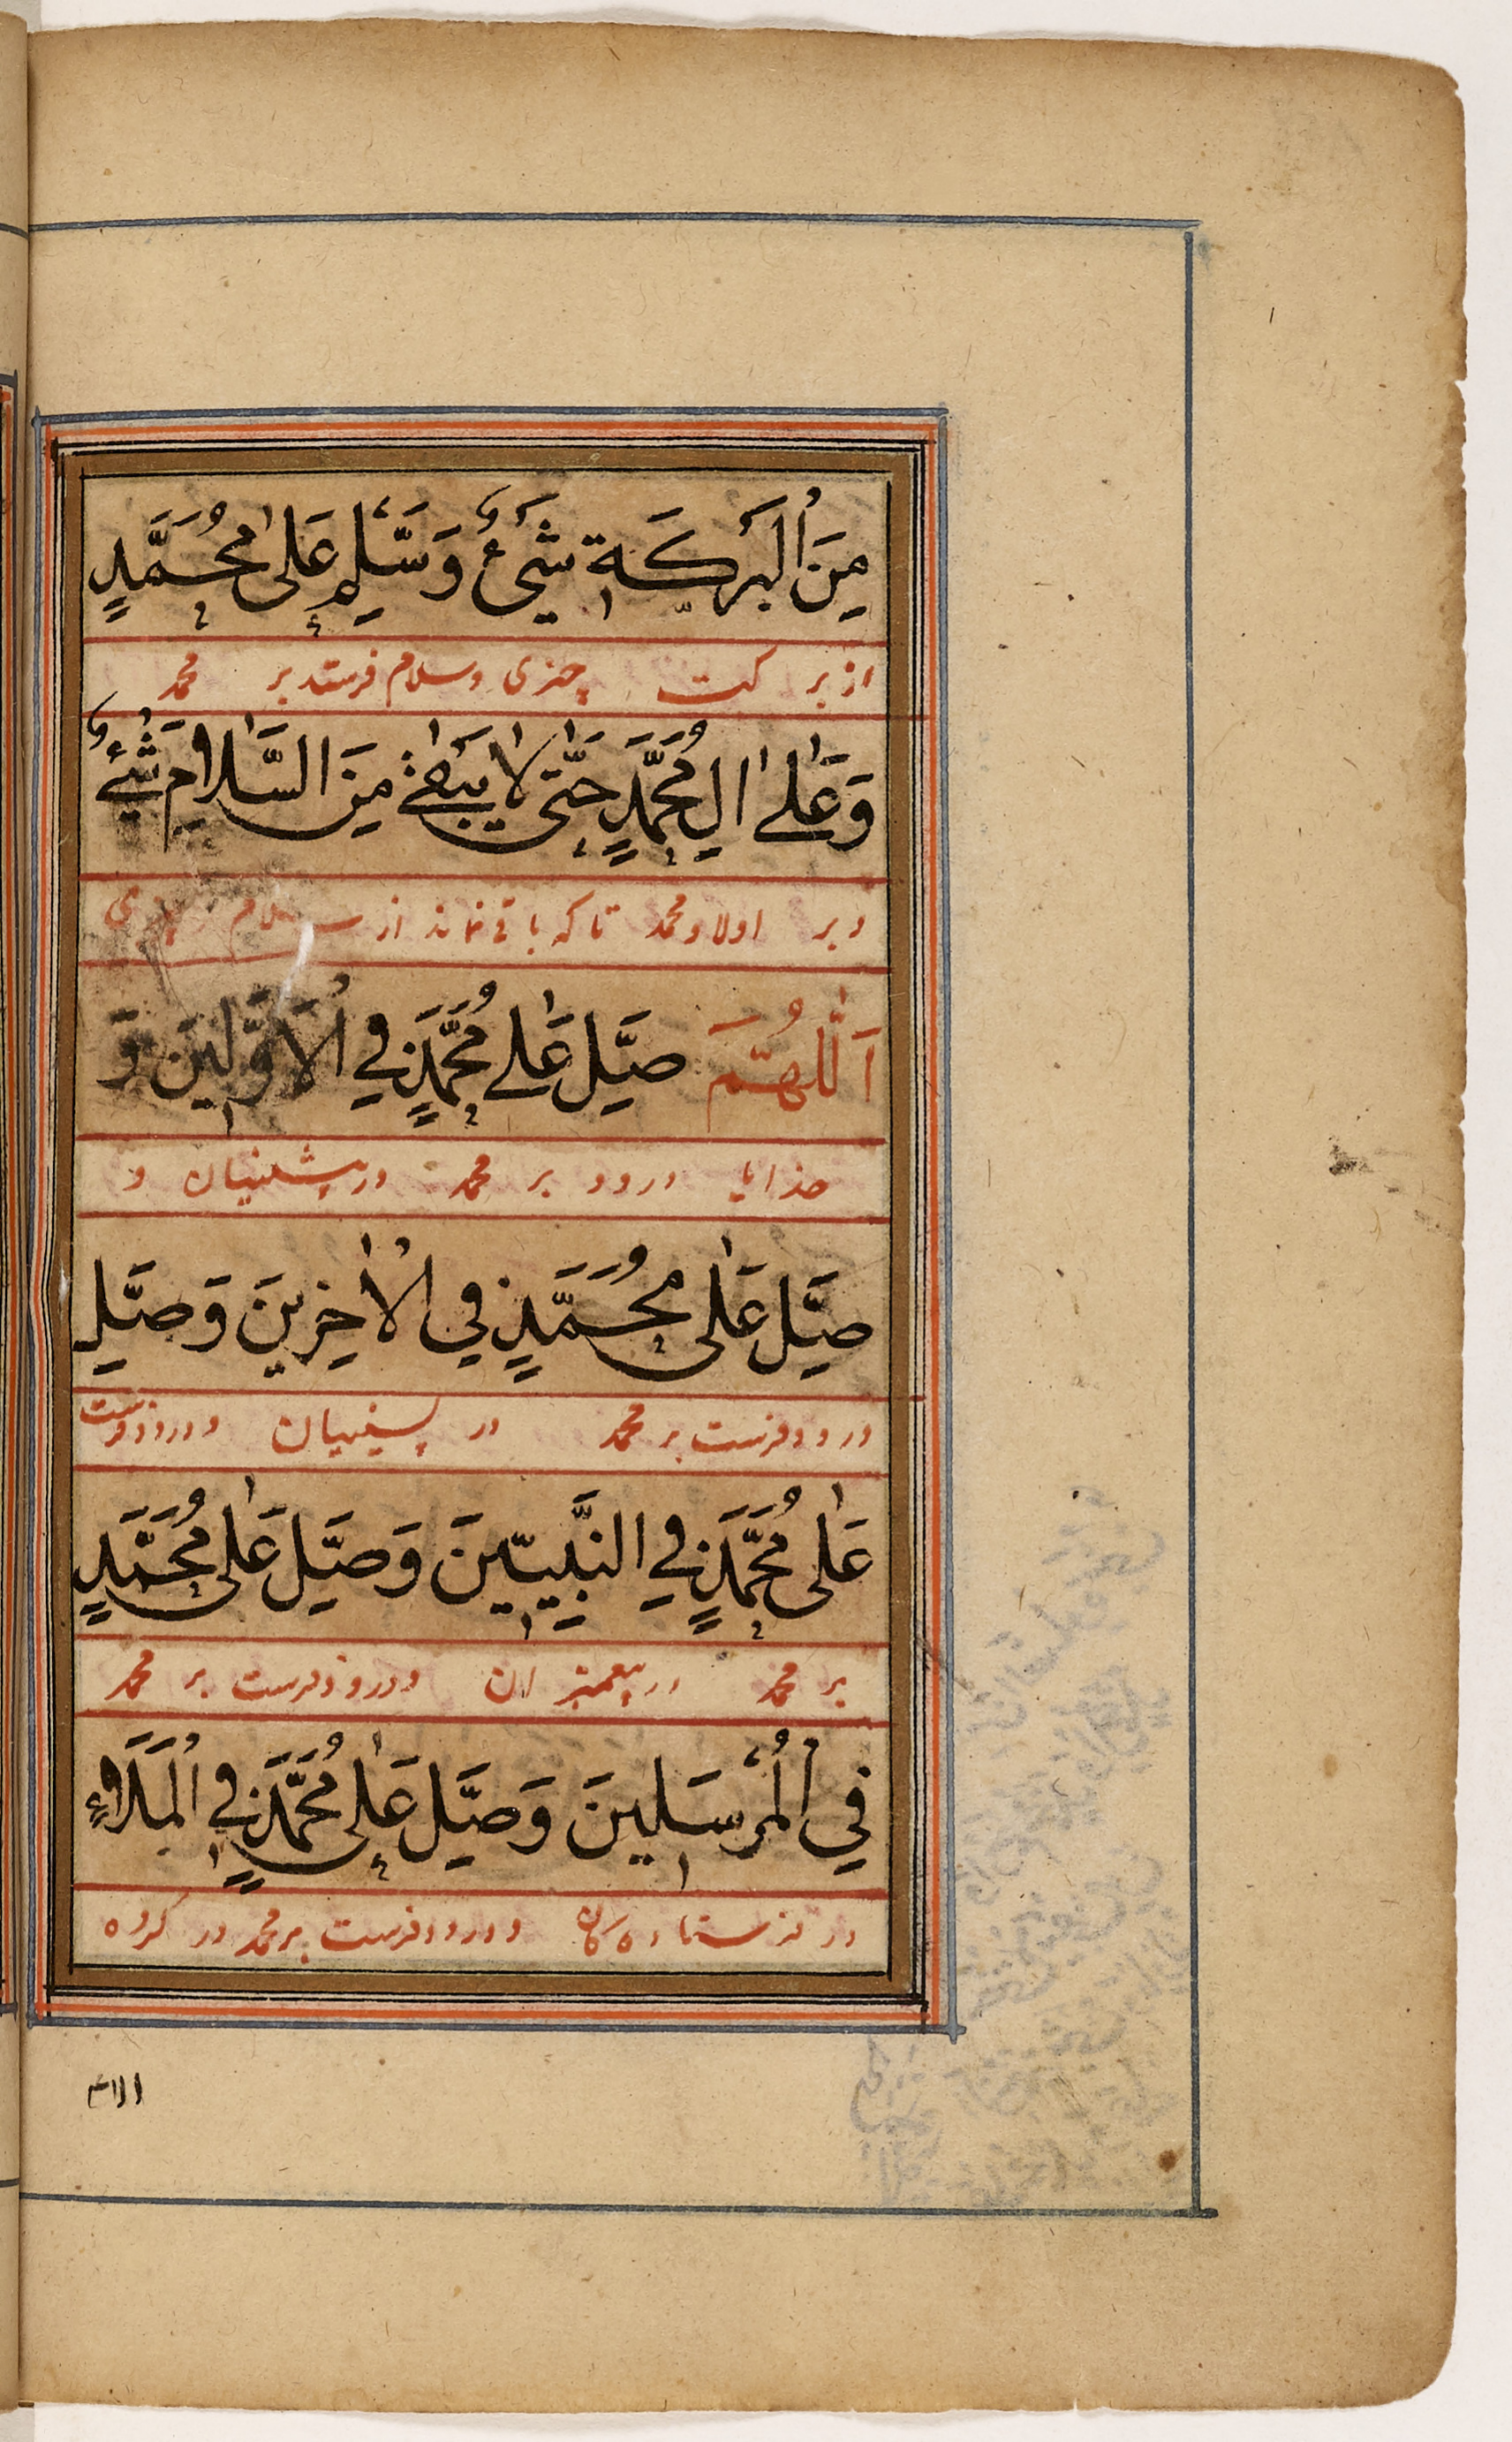 مِنَ الْبَرَكَةِ شَیْءٌ وَسَلِّمْ عَلٰی مُحَمَّدٍ
از برکت چیزی وسلام فرستد بر محمد
وَعَلٰی اٰلِ مُحَمَّدٍ حَتّٰی لَا یَبْقٰی مِنَ السَّلَامِ شَیْءٌ
وبر اولاد محمد تا که باقی نماند از سلام چیزی
اَللّٰهُمَّ صَلِّ عَلٰی مُحَمَّدٍ فِی الْاَوَّلِینَ وَ
خدایا درود بر محمد در پیشینیان و
صَلِّ عَلٰی مُحَمَّدٍ فِی الْاٰخِرِینَ وَصَلِّ
درود فرست بر محمد در پسینیان ودرود فرست
عَلٰی مُحَمَّدٍ فِی النَّبِیِّینَ وَصَلِّ عَلٰی مُحَمَّدٍ
بر محمد در پیغمبران ودرود فرست بر محمد
فِی الْمُرْسَلِینَ وَصَلِّ عَلٰی مُحَمَّدٍ فِی الْمَلَاءِ
در فرستاده کان ودرود فرست بر محمد در کروه